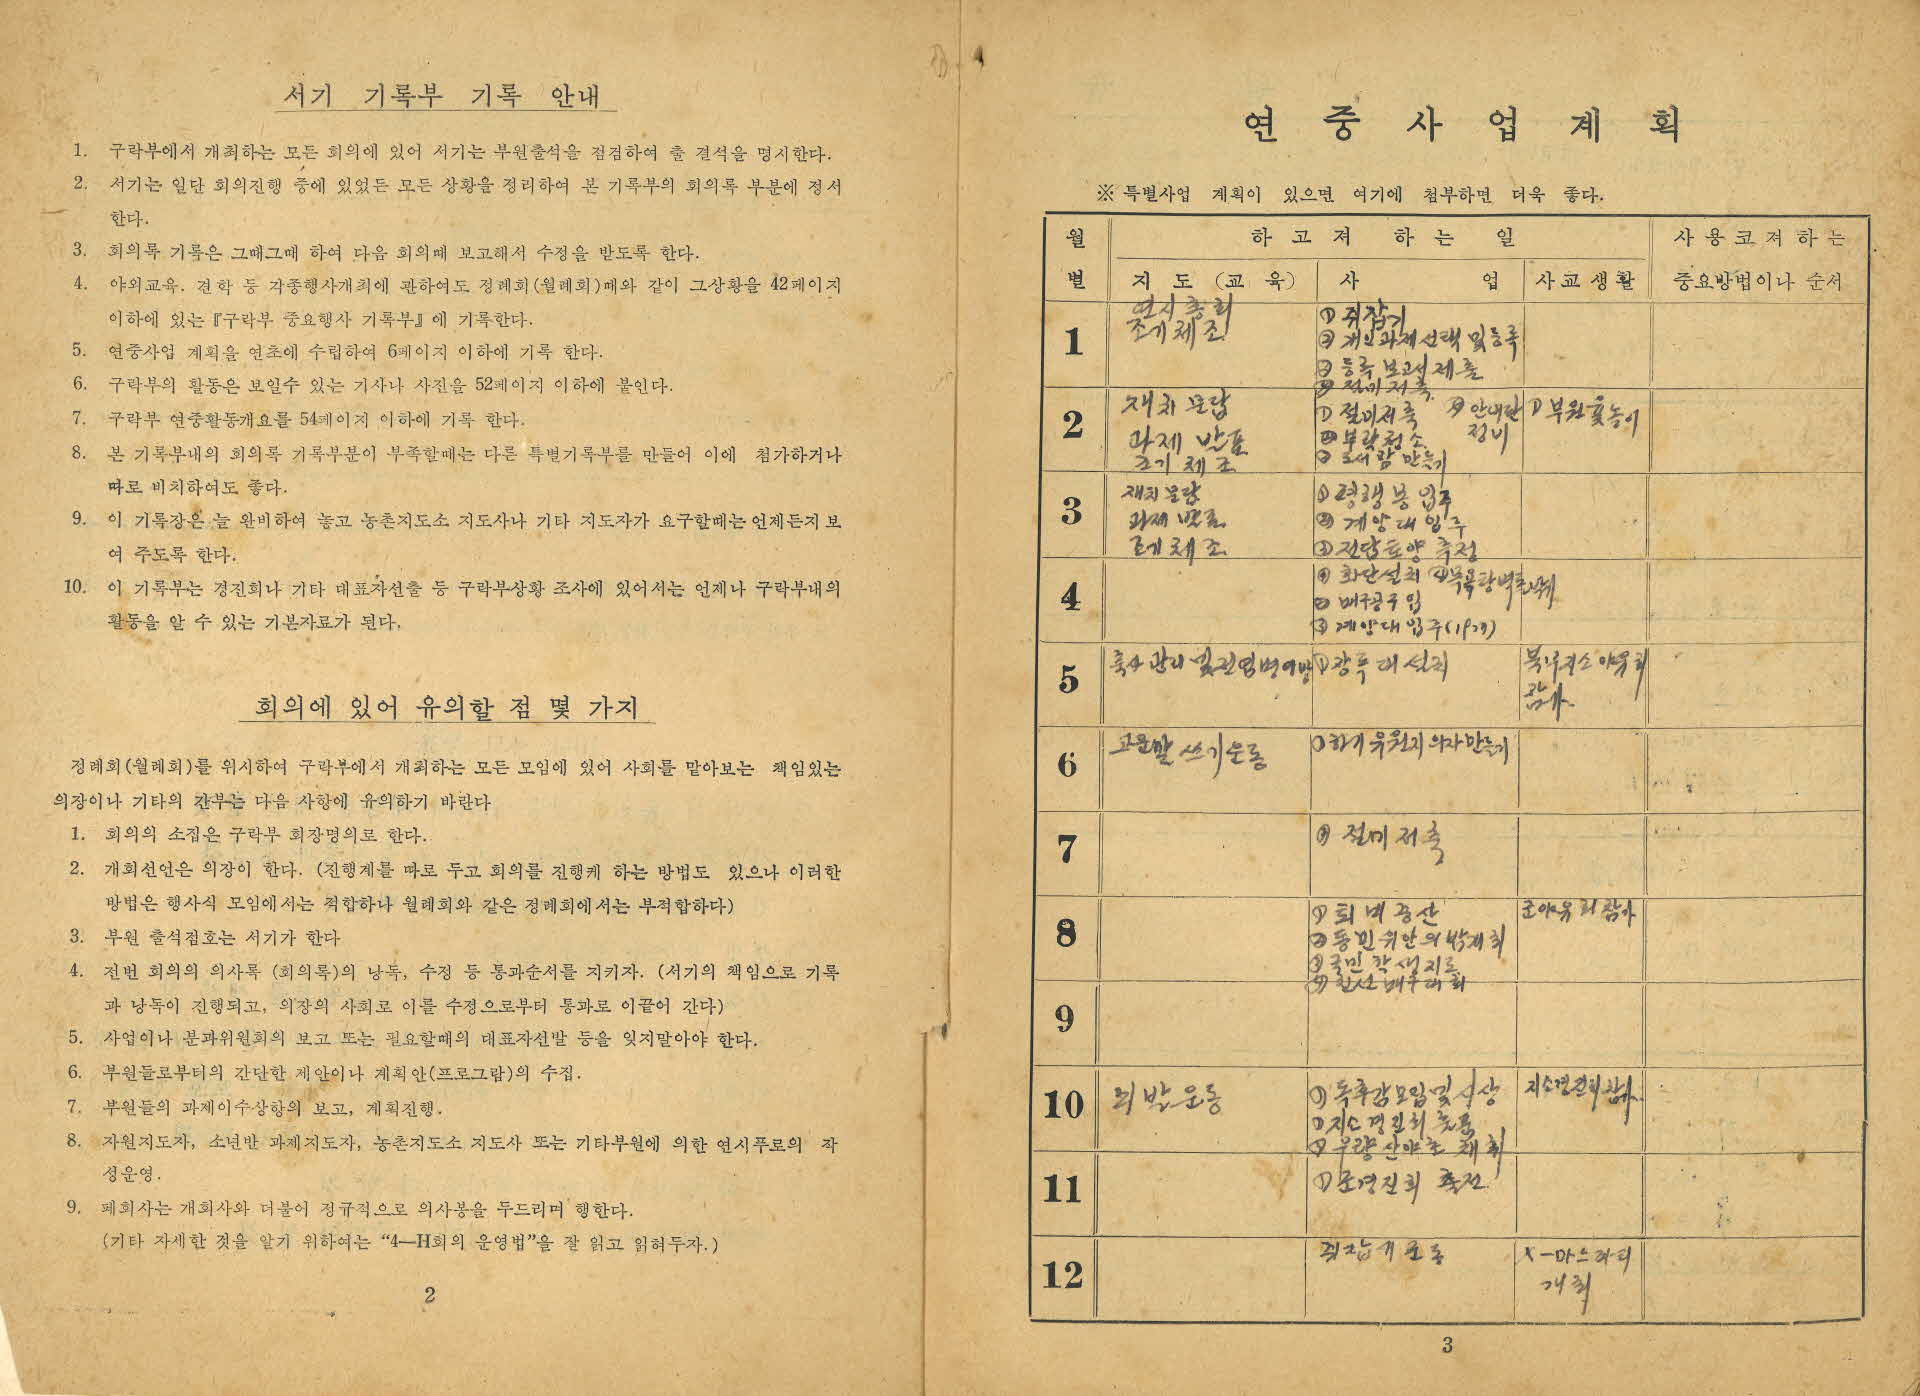 서기 기록부 기록 안내
1. 구락부에서 개최하는 모든 회의에 있어 서기는 부원출석을 점검하여 출 결석을 명시한다.
2. 서기는 일단 회의진행 중에 있었든 모든 상황을 정리하여 본 기록부의 회의록 부분에 정서
한다.
3. 회의록 기록은 그때그때 하여 다음 회의때 보고해서 수정을 받도록 한다.
4. 야외교육. 견학 등 각종행사개최에 관하여도 정례회(월례회)때와 같이 그상황을 42페이지
이하에 있는『구락부 중요행사 기록부』에 기록한다.
5. 연중사업 계획을 연초에 수립하여 6페이지 이하에 기록 한다.
6. 구락부의 활동은 보일수 있는 기사나 사진을 52페이지 이하에 붙인다.
7. 구락부 연중활동개요를 54페이지 이하에 기록 한다.
8. 본 기록부내의 회의록 기록부분이 부족할때는 다른 특별기록부를 만들어 이에 첨가하거나
따로 비치하여도 좋다.
9. 이 기록장은 늘 완비하여 놓고 농촌지도소 지도사나 기타 지도자가 요구할때는 언제든지 보
여 주도록 한다.
10. 이 기록부는 경진회나 기타 대표자선출 등 구락부상황 조사에 있어서는 언제나 구락부내의
활동을 알 수 있는 기본자료가 된다.
회의에 있어 유의할 점 몇 가지
정례회(월례회)를 위시하여 구락부에서 개최하는 모든 모임에 있어 사회를 맡아보는 책임있는
의장이나 기타의 간부는 다음 사항에 유의하기 바란다
1. 회의의 소집은 구락부 회장명의로 한다.
2. 개회선언은 의장이 한다. (진행계를 따로 두고 회의를 진행케 하는 방법도 있으나 이러한
방법은 행사식 모임에서는 적합하나 월례회와 같은 정례회에서는 부적합하다)
3. 부원 출석점호는 서기가 한다
4. 전번 회의의 의사록 (회의록)의 낭독, 수정 등 통과순서를 지키자. (서기의 책임으로 기록
과 낭독이 진행되고, 의장의 사회로 이를 수정으로부터 통과로 이끝어 간다)
5. 사업이나 분과위원회의 보고 또는 필요할때의 대표자선발 등을 잊지말아야 한다.
6. 부원들로부터의 간단한 제안이나 계획안(프로그람)의 수집.
7. 부원들의 과제이수상항의 보고, 계획진행.
8. 자원지도자, 소년반 과제지도자, 농촌지도소 지도사 또는 기타부원에 의한 연시푸로의 작
성운영.
9. 폐회사는 개회사와 더불어 정규적으로 의사봉을 두드리며 행한다.
(기타 자세한 것을 알기 위하여는 “4—H회의 운영법”을 잘 읽고 읽혀두자.)
2
연 중 사 업 계 획
※ 특별사업 계획이 있으면 여기에 첨부하면 더욱 좋다.
월별 하 고 져 하 는 일 사용코져하는
지 도 (교 육) 사 업 사교생활 중요방법이나 순서
1
연시총회
조기체조
① 쥐잡기
② 개인과제선택 및 등록
③ 등록 보고서 제출
④ 절미저축
2
재치문답
과제 발표
조기체조
① 절미저축 ④ 안내판
정비
② 부락청소
③ 도서함 만들기
① 부원윷놀이
3
재치문답
과제발표
조기체조
① 평행봉 입주
② 게양대 입주
③ 전답토양 측정
4
① 화단설치
② 배구공구입
③ 게양대 입주
5
축사관리 및 전염병예방
① 설치
참가
6
고운말 쓰기 운동
① 하기 유원지 의자만들기
7
① 절미저축
8
① 퇴비증산
② 동민위안의
③ 국민학생지도
④ 친선배구대회
군야유회참가
9
10
이발운동
① 독후감모임및시상
② 지소경진회 출품
③ 우량 산야초 채취
지소경진회참가
11
① 군경진회 출전
12
쥐잡기운동
X-마스파티
개최
3